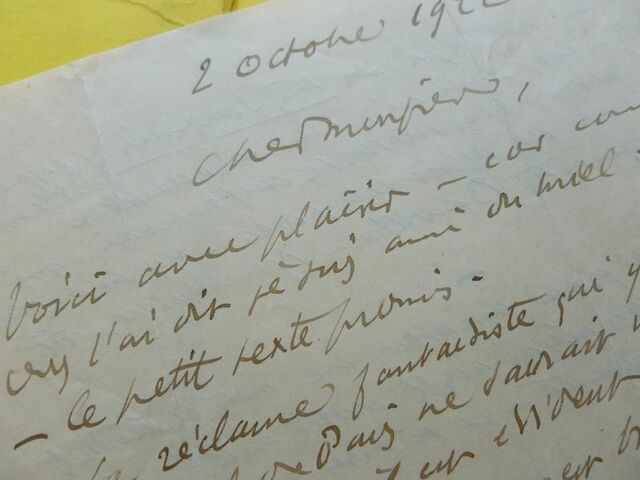 2 Octobre 192
Cher Monsieur,
Voici avec plaisir – car
l'ai dit je suis ami du miel
– le petit texte promis –
réclame fantaisiste qui
de Paris ne saurait
il est évident
est